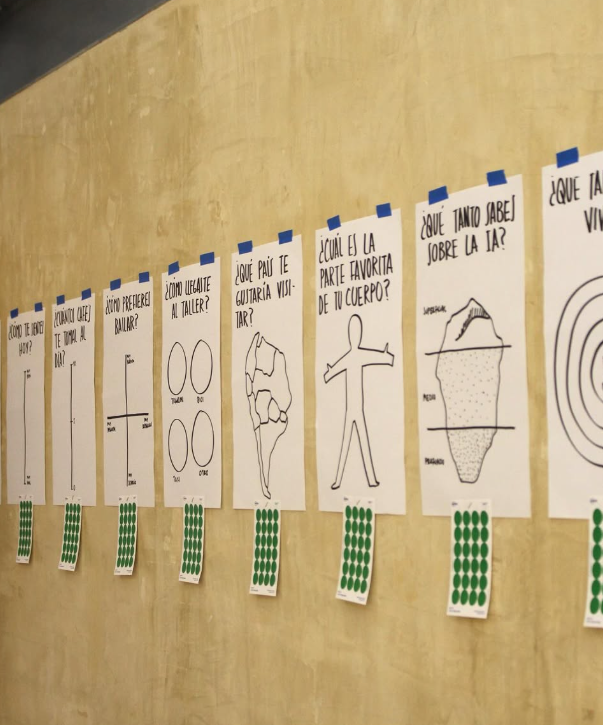 ¿CÓMO TE SIENTES
HOY?
¿CUÁNTOS CAFES
TE TOMAS AL
DÍA?
¿CÓMO PREFIERES
BAILAR?
¿CÓMO LLEGASTE
AL TALLER?
¿QUE PAÍS TE
GUSTARÍA VISI-
TAR?
¿CUÁL ES LA
PARTE FAVORITA
DE TU CUERPO?
¿QUÉ TANTO SABES
SOBRE LA IA?
SUPERFICIAL
MEDIO
PROFUNDO
¿QUE TA
VIV